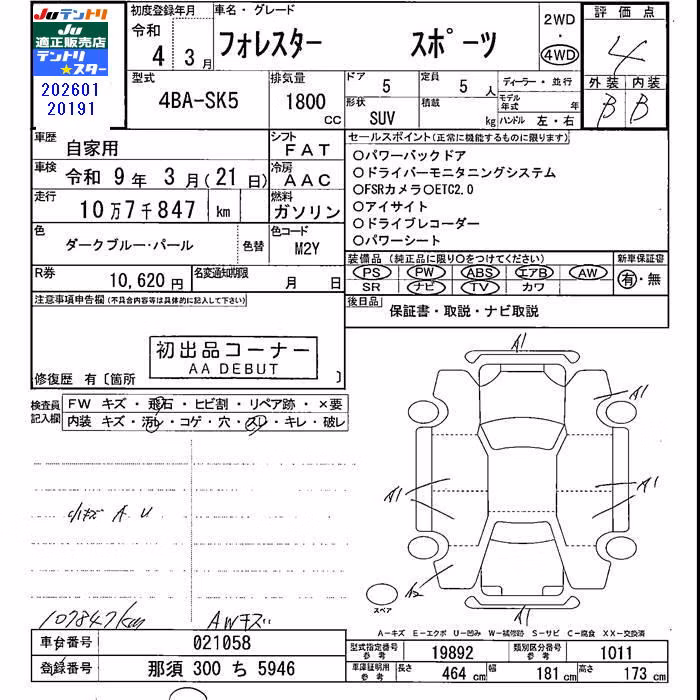 Juテントリ
Ju
適正販売店
テントリ
スター
202601
20191
初度登録年月
令和
4 3月
車名・グレード
フォレスター スポーツ
2WD
・
4WD
評価点
4
外装 内装
B B
型式
4BA-SK5
排気量
1800
CC
ドア
5
定員
5人
ディーラー・並行
形状
SUV
積載
kg
モデル年式 年
ハンドル 左・右
車歴
自家用
シフト
FAT
車検
令和 9年 3月(21日)
冷房
AAC
走行
10万7千847 km
燃料
ガソリン
色
ダークブルー・パール
色替
色コード
M2Y
R券
10,620円
名変通知期限
月 日
セールスポイント(正常に機能するものに限ります)
○パワーバックドア
○ドライバーモニタニングシステム
○FSRカメラ○ETC2.0
○アイサイト
○ドライブレコーダー
○パワーシート
装備品(純正品に限り○をつけてください)
新車保証書
PS PW ABS エアB AW
SR ナビ TV カワ
有・無
後日品
保証書・取説・ナビ取説
注意事項申告欄(不具合内容等は具体的に記入して下さい)
初出品コーナー
AA DEBUT
修復歴 有〔箇所 〕
検査員
記入欄
FW キズ・飛石・ヒビ割・リペア跡・×要
内装 キズ・汚れ・コゲ・穴・スレ・キレ・破レ
小キズ A U
107847km
AWキズ
A1
A1
A1
A1
A2
A1
スペア
A-キズ E-エクボ U-凹み W-補修跡 S-サビ C-腐食 XX-交換済
車台番号
021058
登録番号
那須 300 ち 5946
型式指定番号
参考
19892
類別区分番号
参考
1011
車庫証明用
参考
長さ
464 cm
幅
181 cm
高さ
173 cm